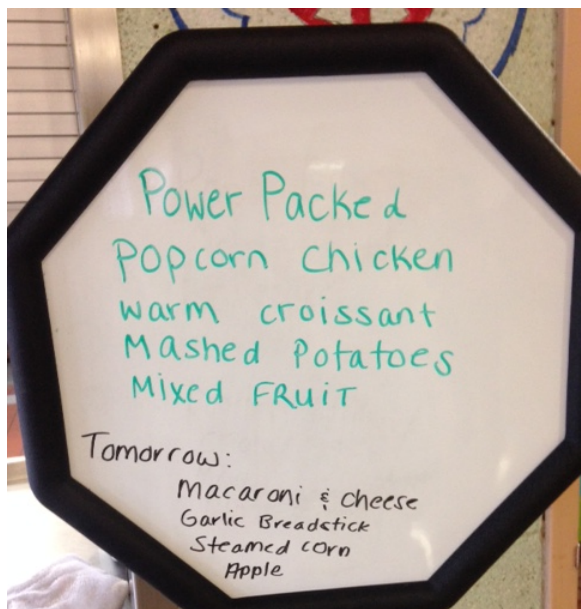 Power Packed
Popcorn Chicken
warm croissant
Mashed Potatoes
Mixed FRUIT
Tomorrow:
Macaroni & cheese
Garlic Breadstick
Steamed corn
Apple